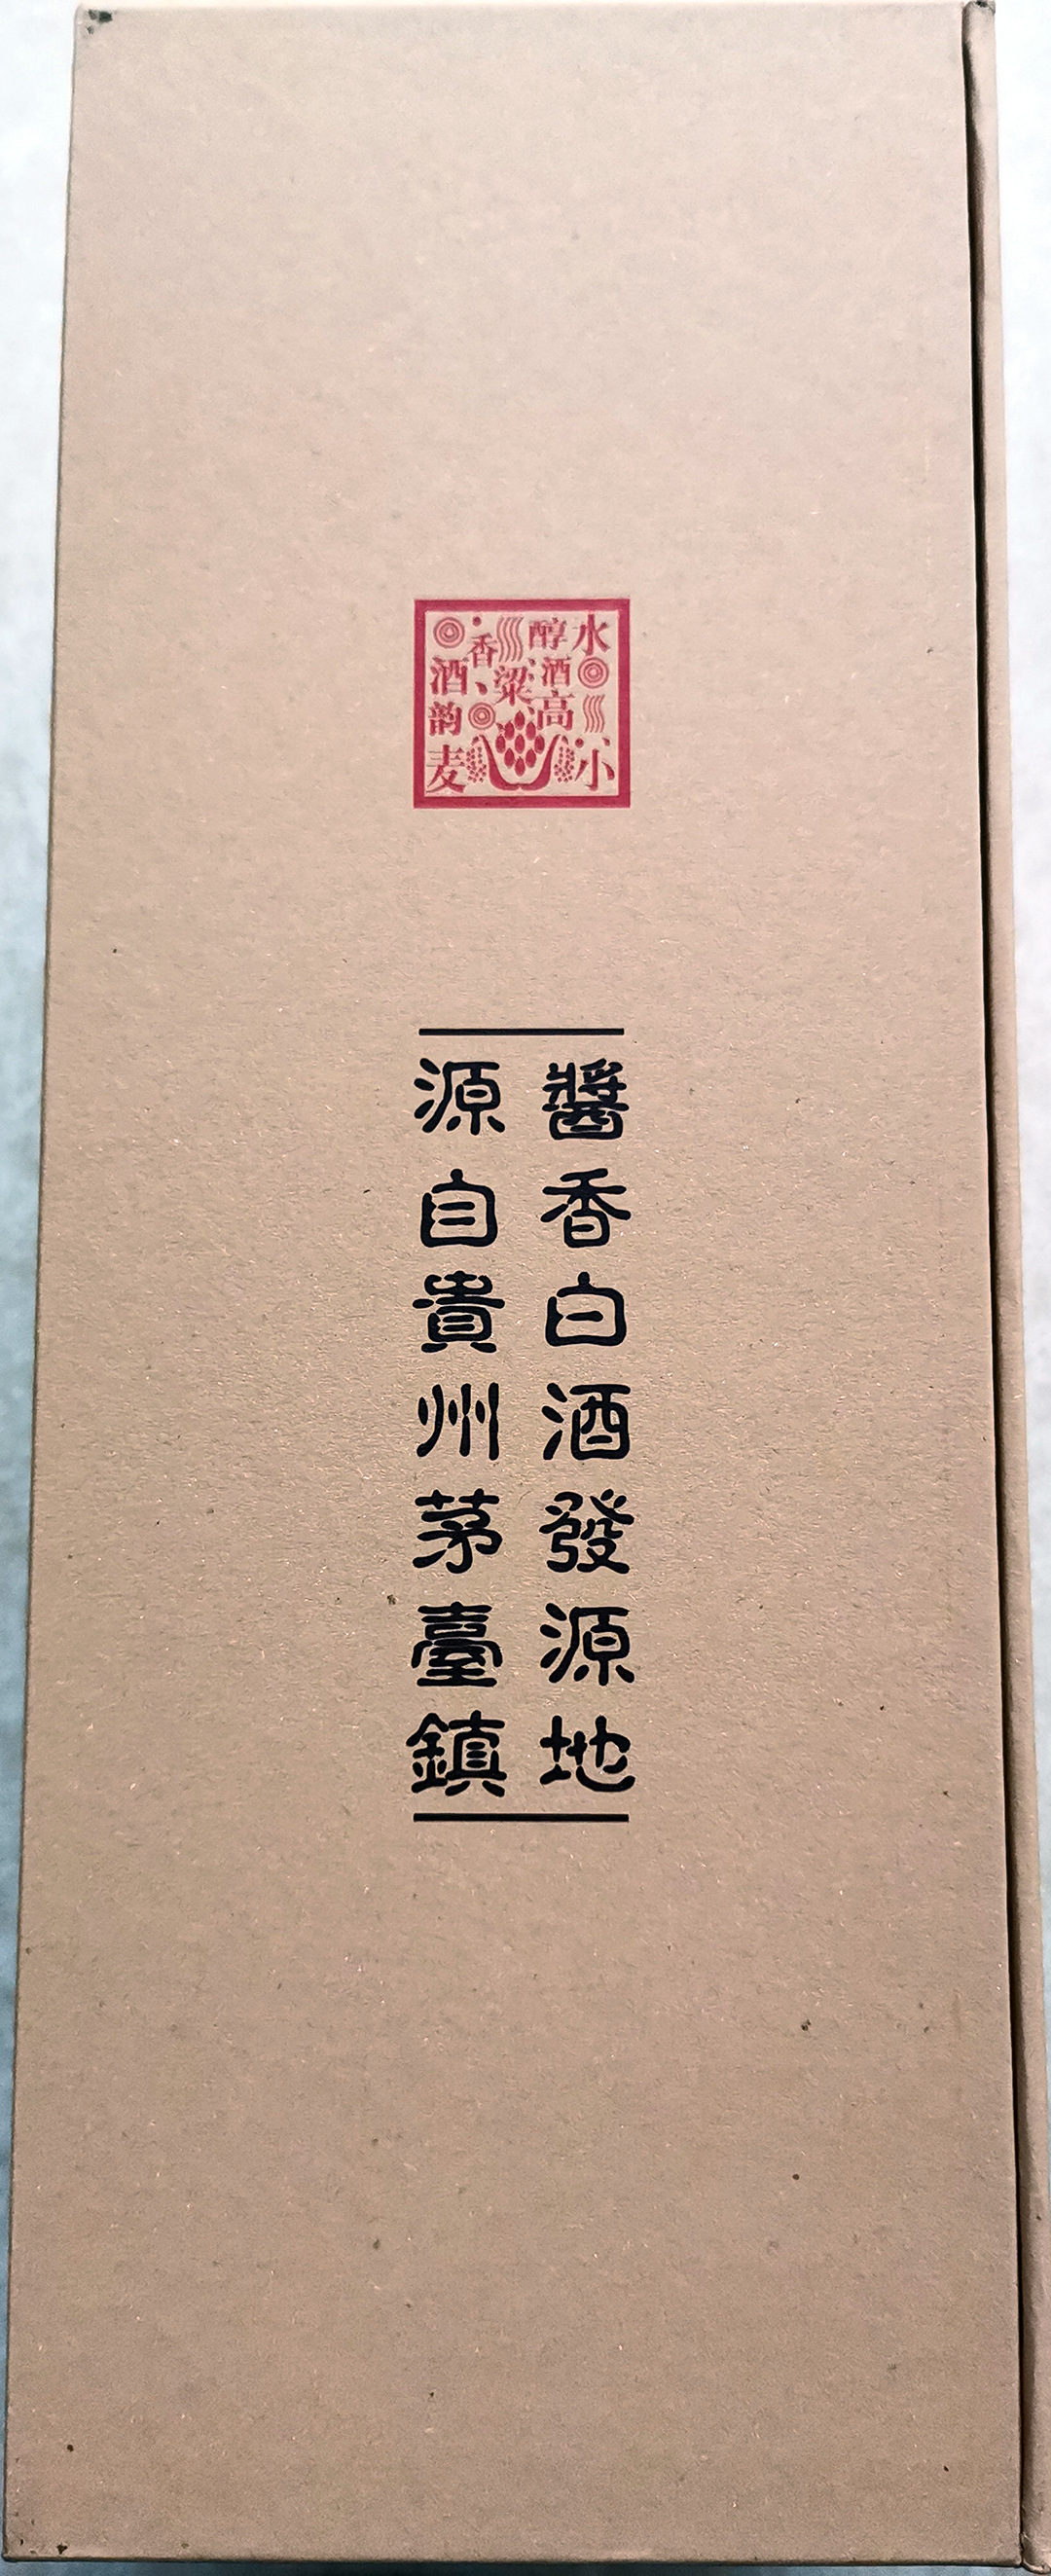 水小
醇酒高
粱
香
酒韵麦
醬香白酒發源地
源自貴州茅臺鎮